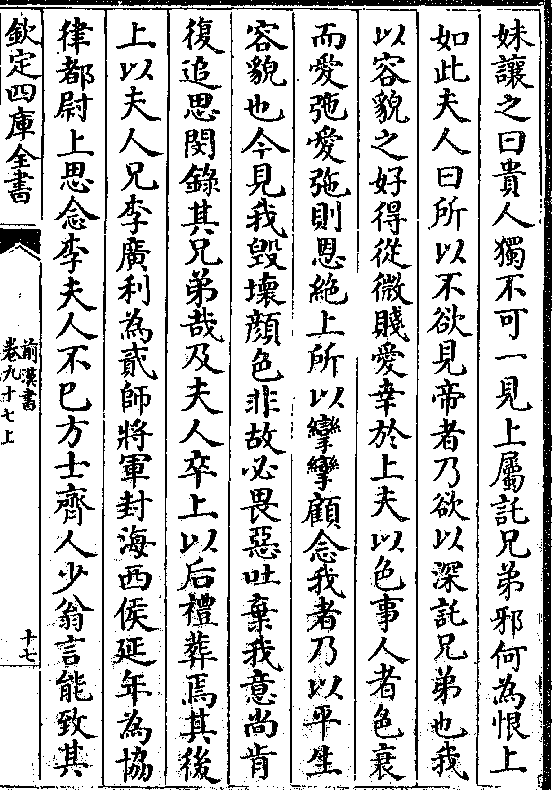 妹讓之曰貴人獨不可一見上屬託兄弟邪何為恨上
如此夫人曰所以不欲見帝者乃欲以深託兄弟也我
以容貌之好得從微賤愛幸於上夫以色事人者色衰
而愛弛愛弛則恩絶上所以攣攣顧念我者乃以平生
容貌也今見我毀壞顔色非故必畏惡吐棄我意尚肯
復追思閔錄其兄弟哉及夫人卒上以后禮葬焉其後
上以夫人兄李廣利為貳師將軍封海西侯延年為協
律都尉上思念李夫人不已方士齊人少翁言能致其
欽定四庫全書
前漢書
卷九十七上
十七